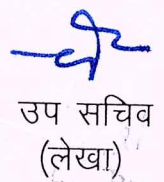 उप सचिव
(लेखा)